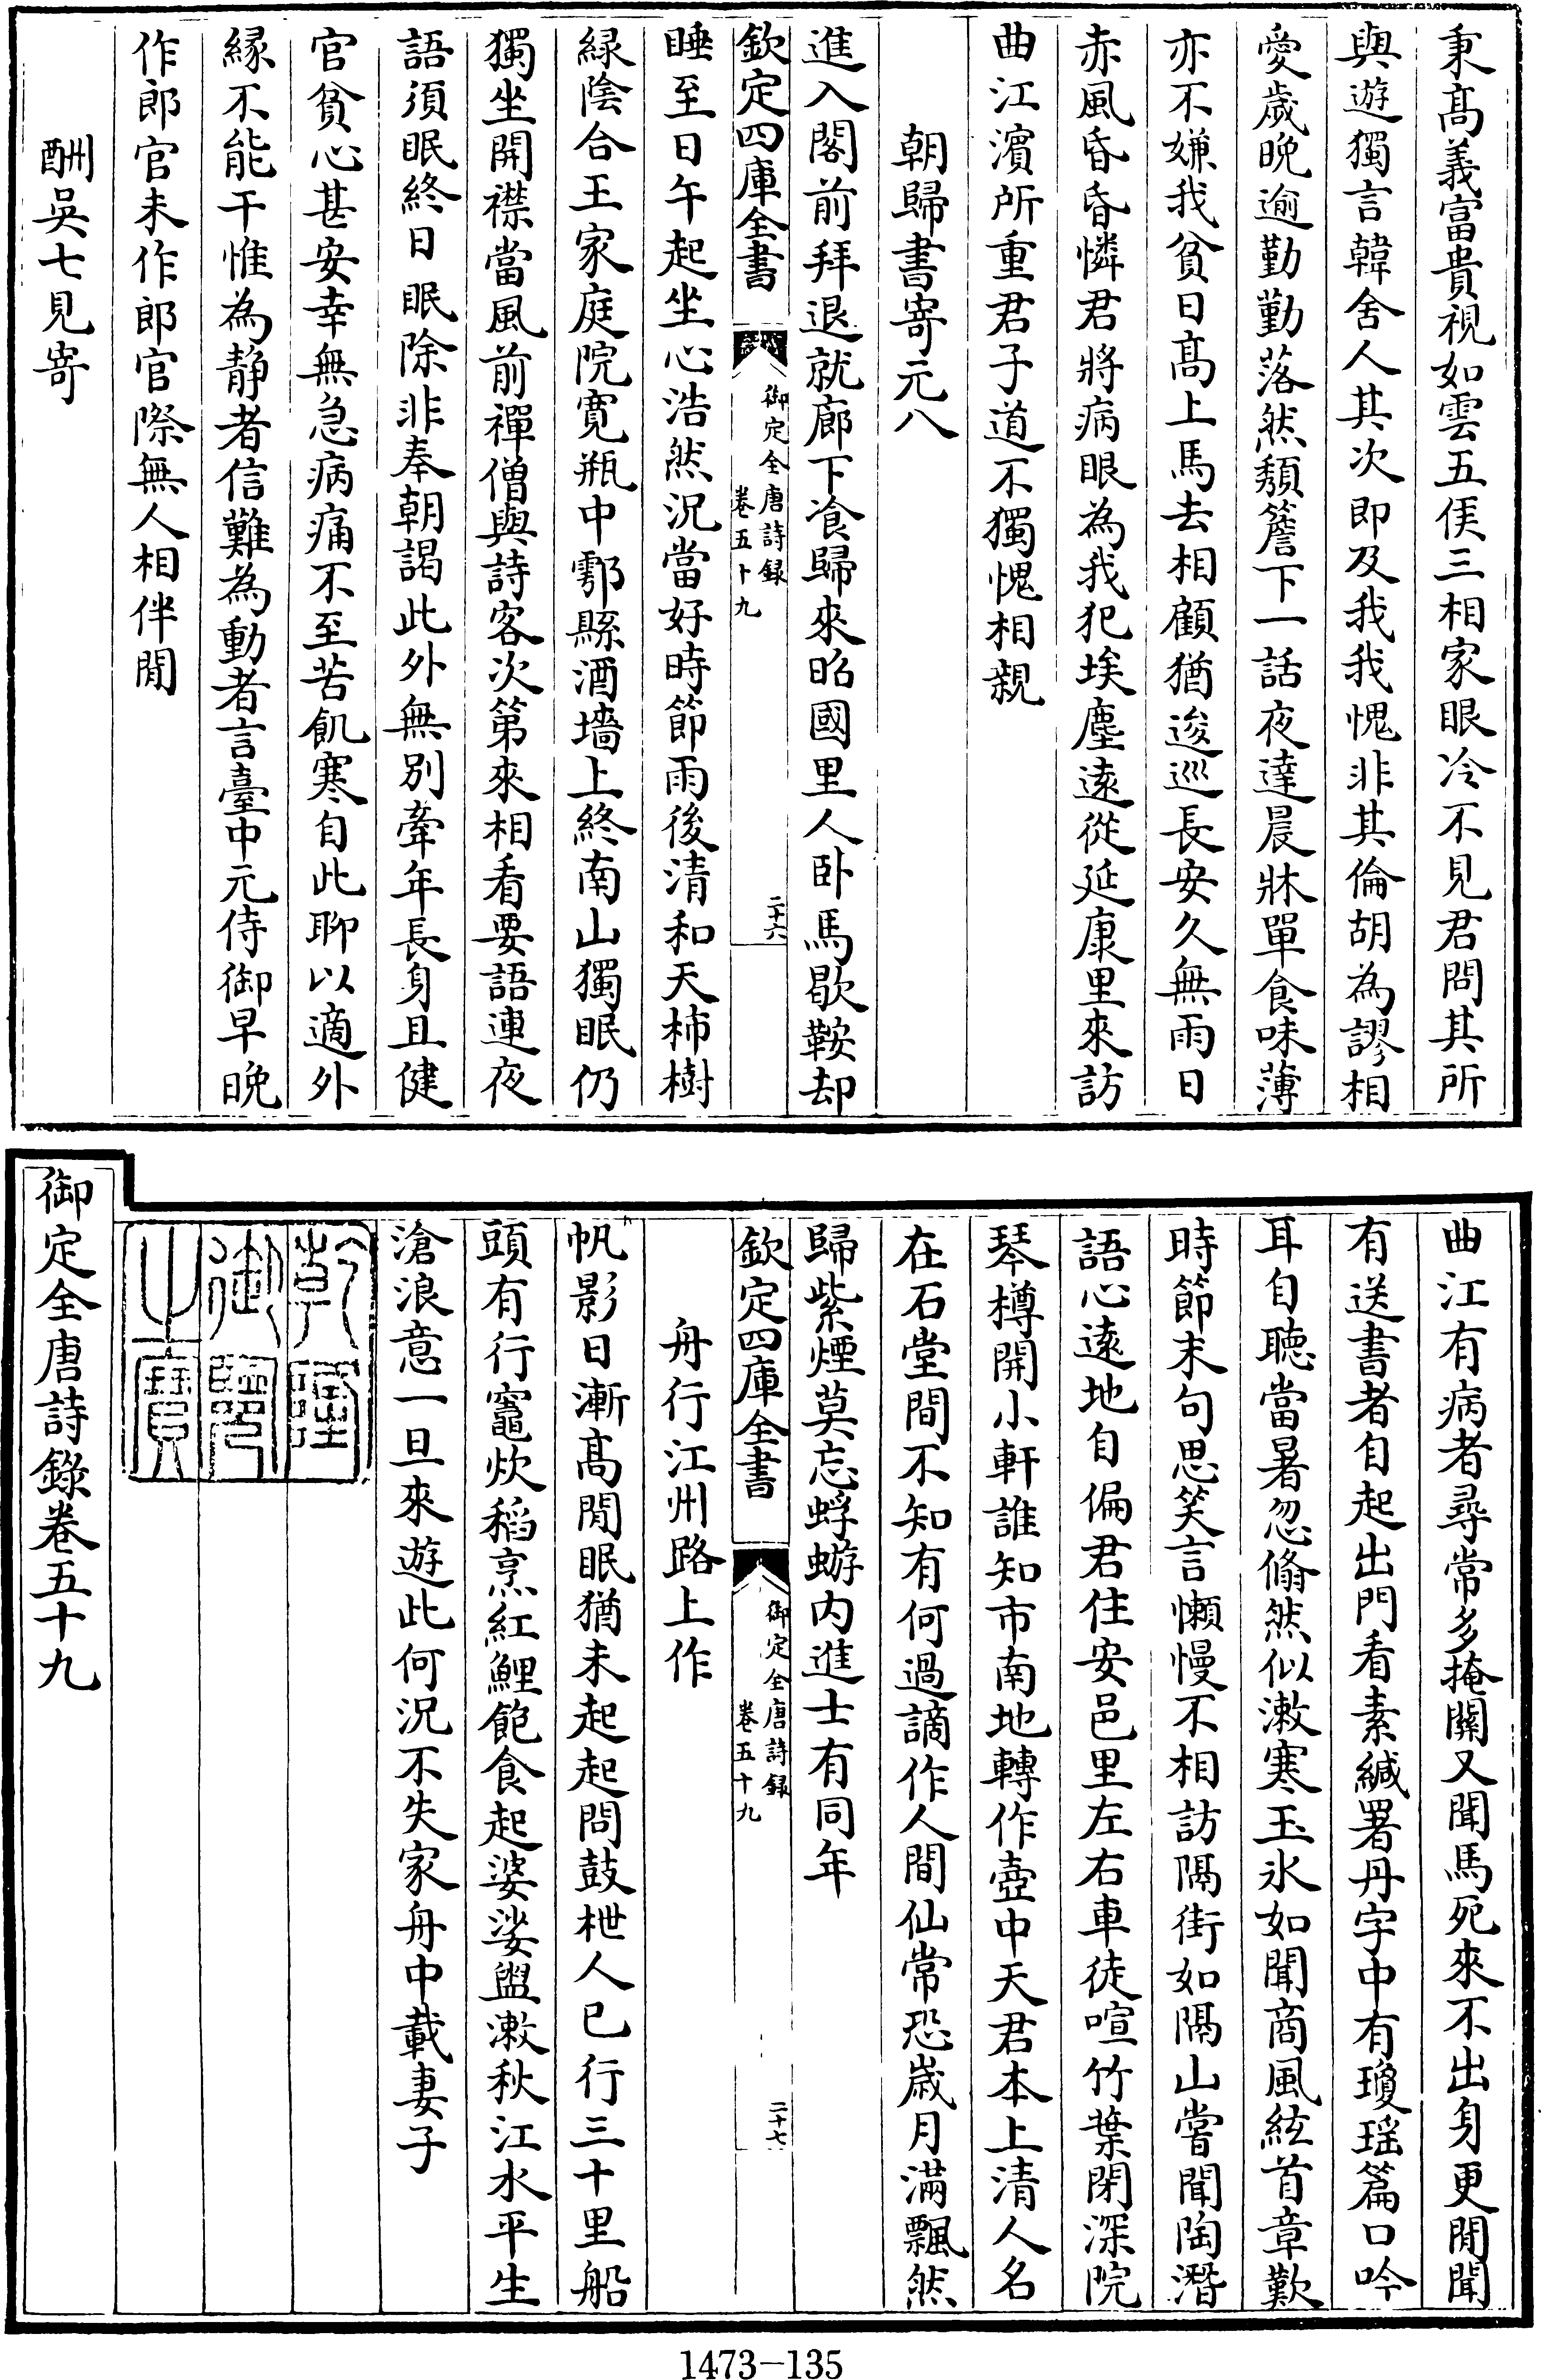 秉髙義富貴視如雲五侯三相家眼冷不見君問其所
與遊獨言韓舍人其次即及我我愧非其倫胡為謬相
愛歲晚逾勤勤落然頽簷下一話夜達晨牀單食味薄
亦不嫌我貧日髙上馬去相顧猶逡巡長安久無雨日
赤風昏昏憐君將病眼為我犯埃塵逺從延康里來訪
曲江濱所重君子道不獨愧相親
朝歸書寄元八
進入閣前拜退就廊下飡歸來昭國里人卧馬歇鞍却
欽定四庫全書
御定全唐詩録
卷五十九
二十六
睡至日午起坐心浩然況當好時節雨後清和天柿樹
緑陰合王家庭院寛瓶中鄠縣酒墻上終南山獨眠仍
獨坐開襟當風前禪僧與詩客次第來相看要語連夜
語須眠終日眠除非奉朝謁此外無别牽年長身且健
官貧心甚安幸無急病痛不至苦飢寒自此聊以適外
縁不能干惟為静者信難為動者言臺中元侍御早晚
作郎官未作郎官際無人相伴閒
酬吳七見寄
曲江有病者尋常多掩關又聞馬死來不出身更閒聞
有送書者自起出門看素緘署丹字中有瓊瑶篇口吟
耳自聽當暑忽翛然似漱寒玉氷如聞商風絃首章歎
時節末句思笑言懶慢不相訪隔街如隔山嘗聞陶潛
語心逺地自偏君住安邑里左右車徒喧竹葉閉深院
琴樽開小軒誰知市南地轉作壺中天君本上清人名
在石堂間不知有何過謫作人間仙常恐嵗月滿飄然
歸紫煙莫忘蜉蝣内進士有同年
欽定四庫全書
御定全唐詩録
卷五十九
二十七
舟行江州路上作
帆影日漸髙閒眠猶未起起問鼓枻人已行三十里船
頭有行竈炊稻烹紅鯉飽食起婆娑盥漱秋江水平生
滄浪意一旦來遊此何況不失家舟中載妻子
乾隆
御覽
之寳
御定全唐詩錄卷五十九
1473-135